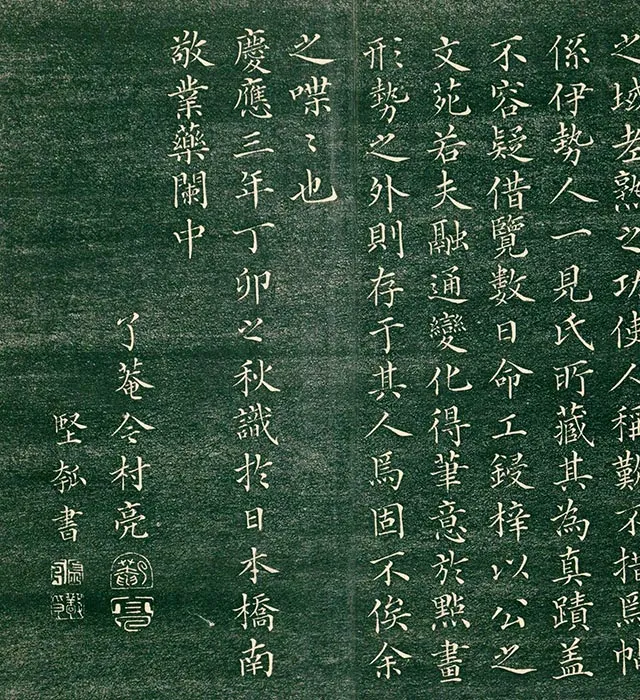 之域老熟之功使人稱歎不措焉帖
係伊勢人一見氏所藏其為真蹟蓋
不容疑借覽數日命工鋟梓以公之
文苑若夫融通變化得筆意於點畫
形勢之外則存于其人焉固不俟余
之喋〻也
慶應三年丁卯之秋識於日本橋南
敬業藥闌中
了菴今村亮
堅瓠書